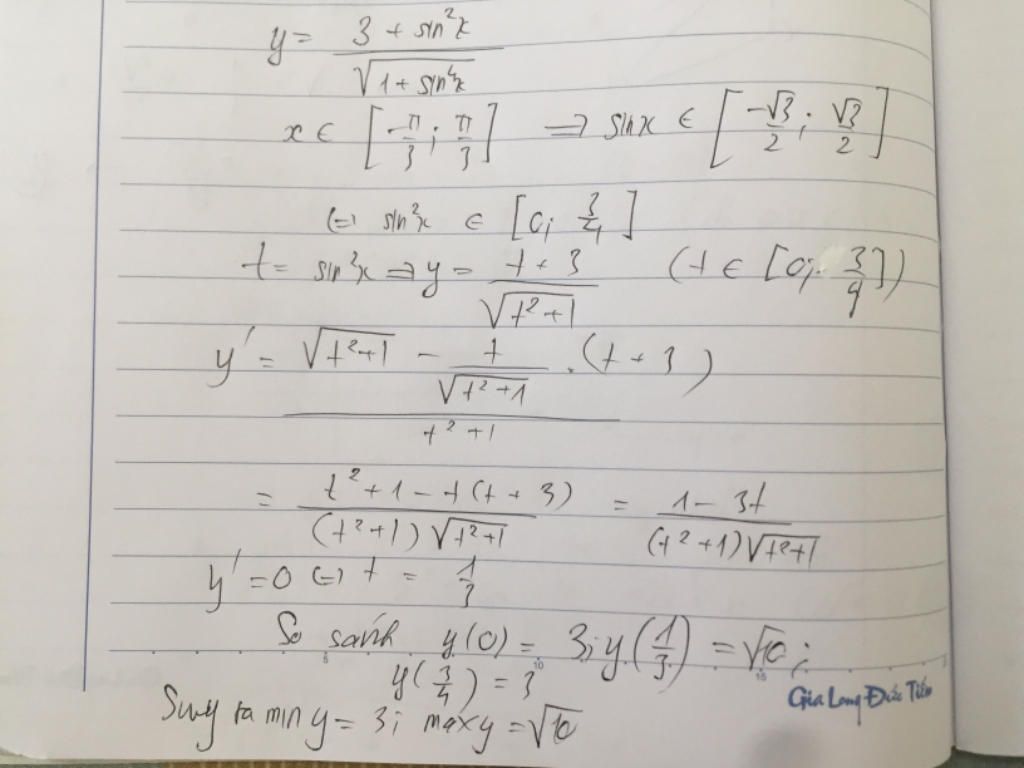 y = (3 + sin²x)/√(1 + sin⁴x)
x ∈ [-π/3; π/3] ⟹ sinx ∈ [-√3/2; √3/2]
(=) sin²x ∈ [0; 3/4]
t = sin²x ⟹ y = (t + 3)/√(t² + 1) (t ∈ [0; 3/4])
y' = (√(t²+1) - t/√(t²+1) . (t + 3))/(t² + 1)
= (t² + 1 - t(t + 3))/((t²+1)√(t²+1)) = (1 - 3t)/((t²+1)√(t²+1))
y' = 0 (=) t = 1/3
So sánh y(0) = 3; y(1/3) = √10;
y(3/4) = 3
Suy ra min y = 3; max y = √10
5 10 15
Gia Long Đức Tiến